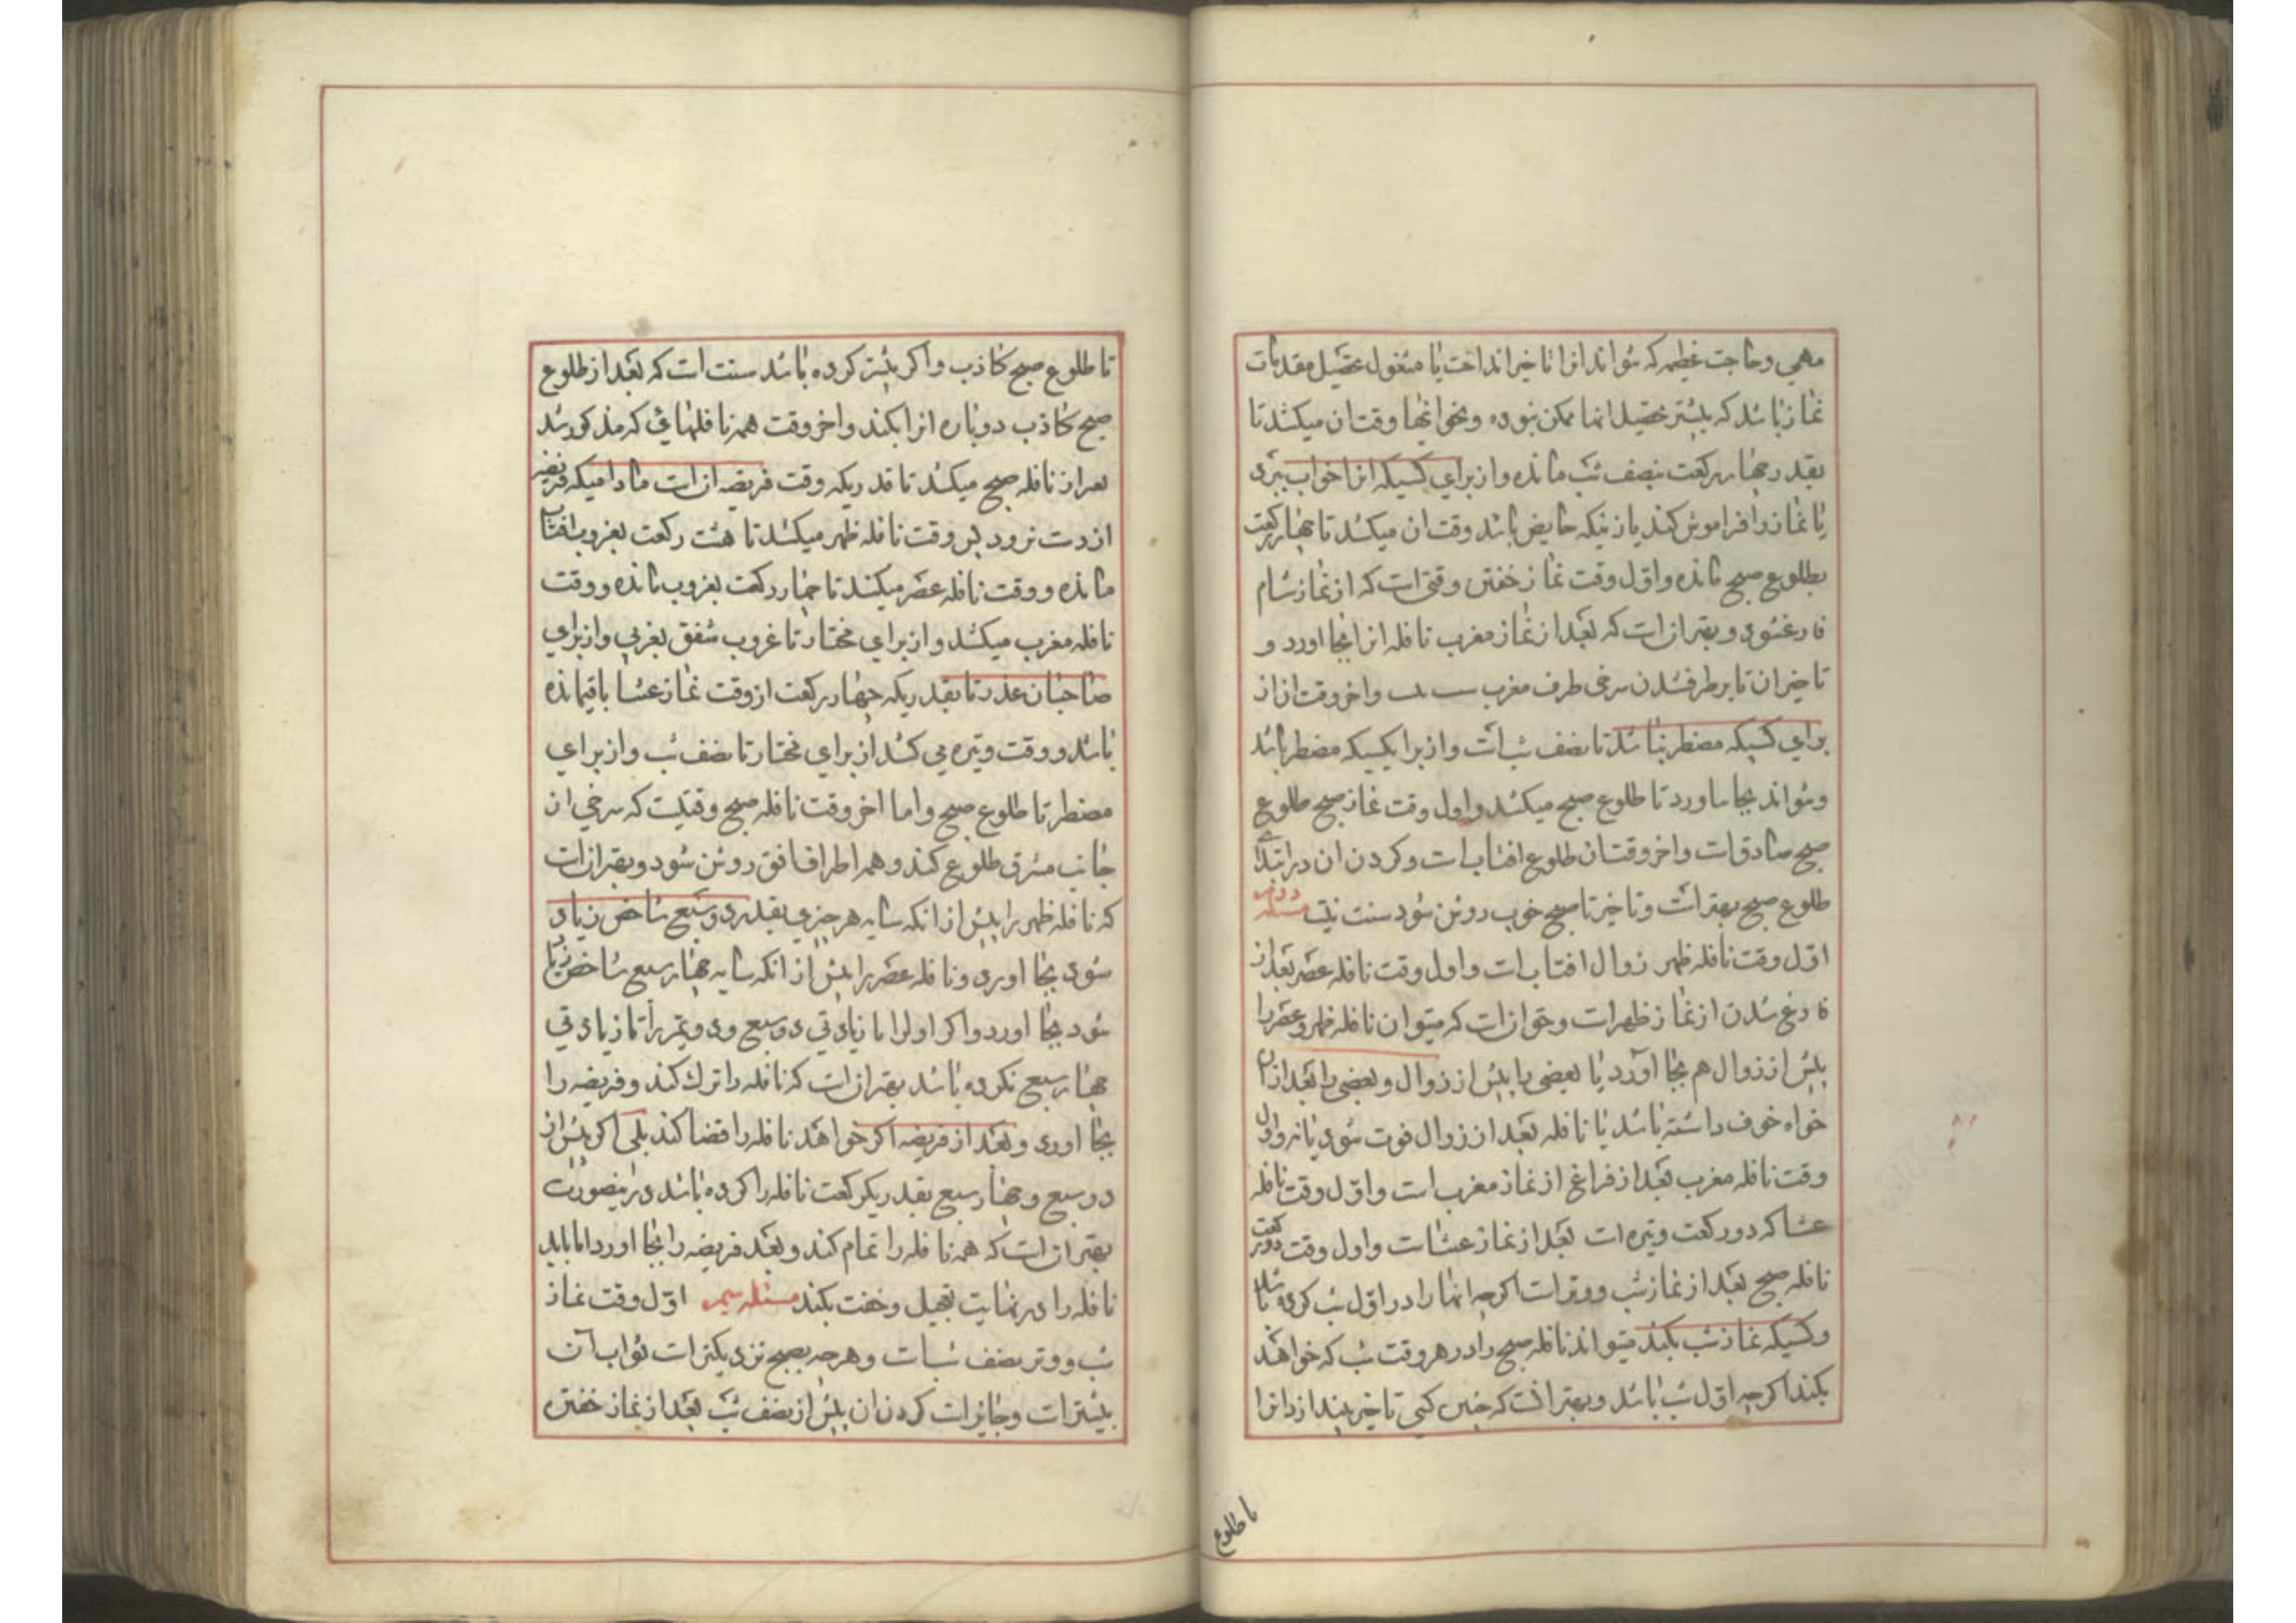 مهمی و حاجت عظیم که نتواند انرا تاخیر انداخت یا مشغول تحصیل مقدمات
نماز باشد که پیشتر تحصیل انها ممکن نبوده و نحو اینها وقت ان میکشد تا
بقدر چهار رکعت بنصف شب مانده و از برای کسیکه انرا خواب ببرد
یا نماز را فراموش کند یا زنیکه حایض باشد وقت ان میکشد تا چهار رکعت
بطلوع صبح مانده و اول وقت نماز خفتن وقتی است که از نماز شام
فارغ شود و بهتر ان است که بعد از نماز مغرب نافله انرا بجا اورد و
تاخیر ان تا برطرف شدن سرخی طرف مغرب و اخر وقت ان از
برای کسیکه مضطر نباشد تا نصف شب است و از برای کسیکه مضطر باشد
و نتواند بجا بیاورد تا طلوع صبح میکشد و اول وقت نماز صبح طلوع
صبح صادق است و اخر وقت ان طلوع افتاب است و کردن ان در ابتدای
طلوع صبح بهتر است و تاخیر تا صبح خوب روشن شود سنت نیست مسئله دویم
اول وقت نافله ظهر زوال افتاب است و اول وقت نافله عصر بعد از
فارغ شدن از نماز ظهر است و حق ان است که میتوان نافله ظهر و عصر را
پیش از زوال هم بجا آورد یا بعضی را پیش از زوال و بعضی را بعد از ان
خواه خوف داشته باشد یا نافله بعد از زوال فوت شود یا نه و اول
وقت نافله مغرب بعد از فراغ از نماز مغرب است و اول وقت نافله
عشا که دو رکعت وتیره است بعد از نماز عشا است و اول وقت دو رکعت
نافله صبح بعد از نماز شب و وتر است اکرچه انها را در اول شب کرده باشد
و کسیکه نماز شب بکند میتواند نافله صبح را در هر وقت شب که خواهد
بکند اکرچه اول شب باشد و بهتر انست که چنین کسی تاخیر بیندازد انرا
تا طلوع
تا طلوع صبح کاذب و اکر پیشتر کرده باشد سنت است که بعد از طلوع
صبح کاذب دوباره انرا بکند و اخر وقت همه نافلهائی که مذکور شد
بعد از نافله صبح میکشد تا قدریکه وقت فریضه ان است مادامیکه فریضه
از دست نرود پس وقت نافله ظهر میکشد تا هشت رکعت بغروب افتاب
مانده و وقت نافله عصر میکشد تا چهار رکعت بغروب مانده و وقت
نافله مغرب میکشد و از برای مختار تا غروب شفق مغربی و از برای
صاحبان عذر تا بقدریکه چهار رکعت از وقت نماز عشا باقیمانده
باشد و وقت وتیره می کشد از برای مختار تا نصف شب و از برای
مضطر تا طلوع صبح و اما اخر وقت نافله صبح وقتیست که سرخی از
جانب مشرق طلوع کند و همه اطراف افق روشن شود و بهتر ان است
که نافله ظهر را پیش از انکه سایه هر چیزی بقدر دو سبع شاخص زیاد
شود بجا اورد و نافله عصر را پیش از انکه سایه چهار سبع شاخص زیاد
شود بجا اورد و اکر اولرا تا زیادتی دو سبع و دویمرا تا زیادتی
چهار سبع نکرده باشد بهتر ان است که نافله را ترک کند و فریضه را
بجا اورد و بعد از فریضه اکر خواهد نافله را قضا کند بلی اکر پیش از
دو سبع و چهار سبع بقدر یکرکعت نافله را کرده باشد در اینصورت
بهتر ان است که همه نافله را تمام کند و بعد فریضه را بجا اورد اما باید
نافله را در نهایت تعجیل و خفت بکند مسئله سیم اول وقت نماز
شب و وتر نصف شب است و هر چه بصبح نزدیکتر است ثواب آن
بیشتر است و جایز است کردن ان پیش از نصف شب بعد از نماز خفتن